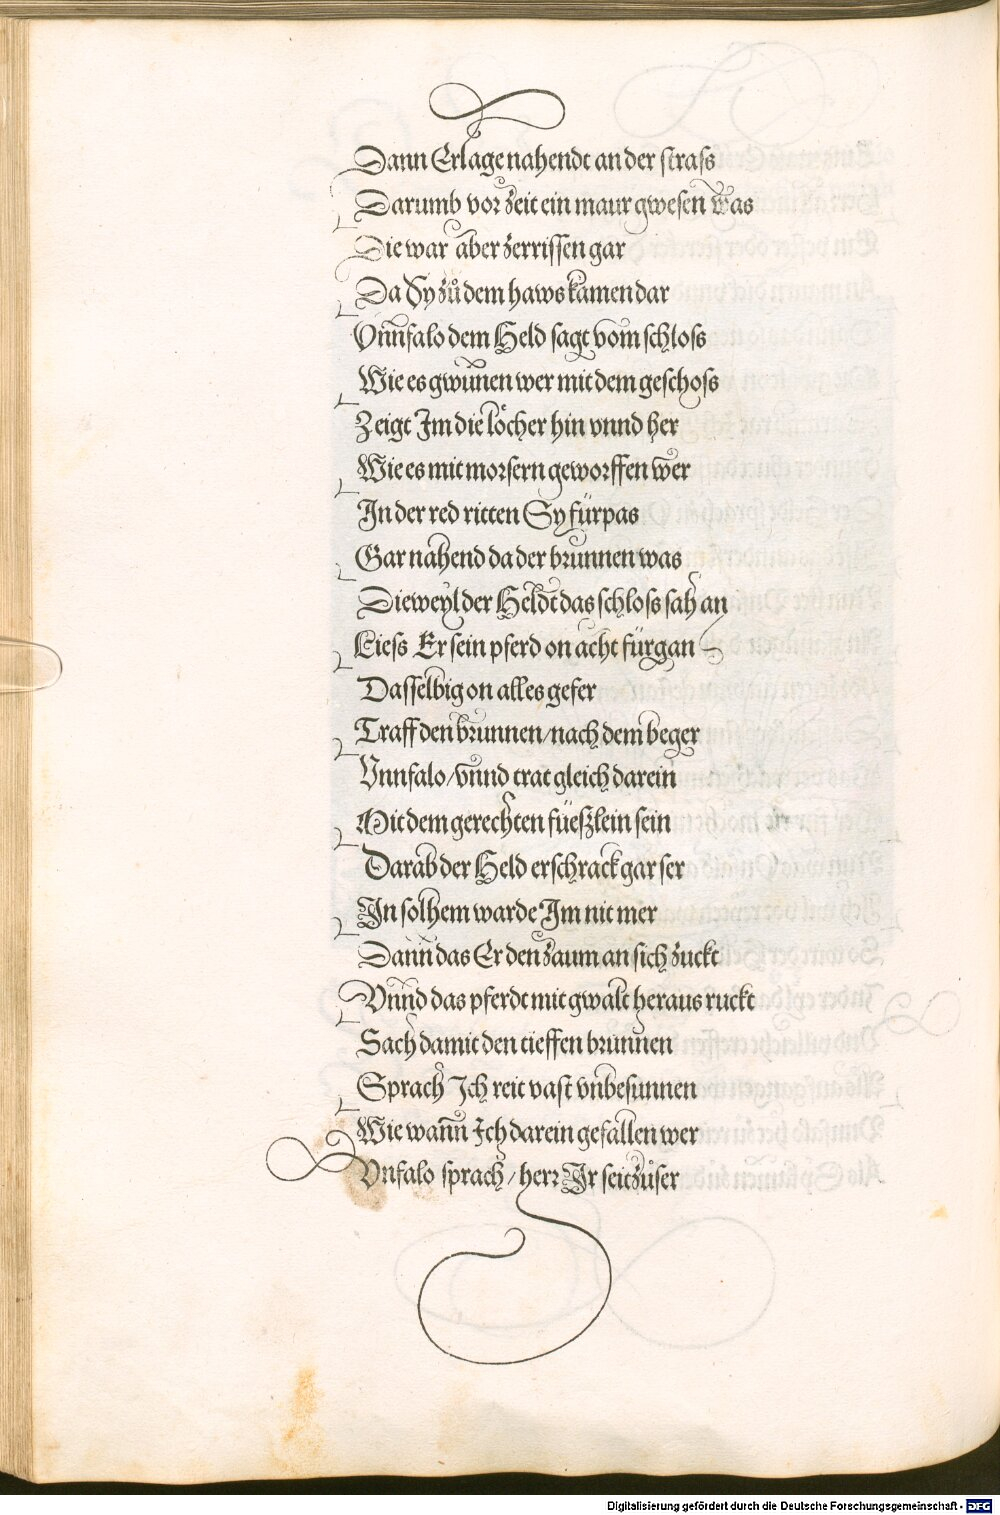 Dann Er lage nahendt an der strass
Darumb vor zeit ein maur gwesen was
Die war aber zerrissen gar
Da Sy zů dem haws kamen dar
Vnnfalo dem Held sagt vom schloss
Wie es gwunnen wer mit dem geschoss
Zeigt Im die löcher hin vnnd her
Wie es mit morsern geworffen wer
In der red ritten Sy fürpas
Gar nahend da der brunnen was
Dieweyl der Heldt das schloss sah an
Liess Er sein pferd on acht fürgan
Dasselbig on alles gefer
Traff den brunnen/nach dem beger
Vnnfalo/vnnd trat gleich darein
Mit dem gerechten füeszlein sein
Darab der Held erschrack gar ser
In solhem warde Im nit mer
Dann das Er den zaum an sich zuckt
Vnnd das pferdt mit gwalt heraus ruckt
Sach damit den tieffen brunnen
Sprach Ich reit vast vnbesunnen
Wie wann Ich darein gefallen wer
Vnfalo sprach/herr Ir seit zů ser
Digitalisierung gefördert durch die Deutsche Forschungsgemeinschaft - DFG